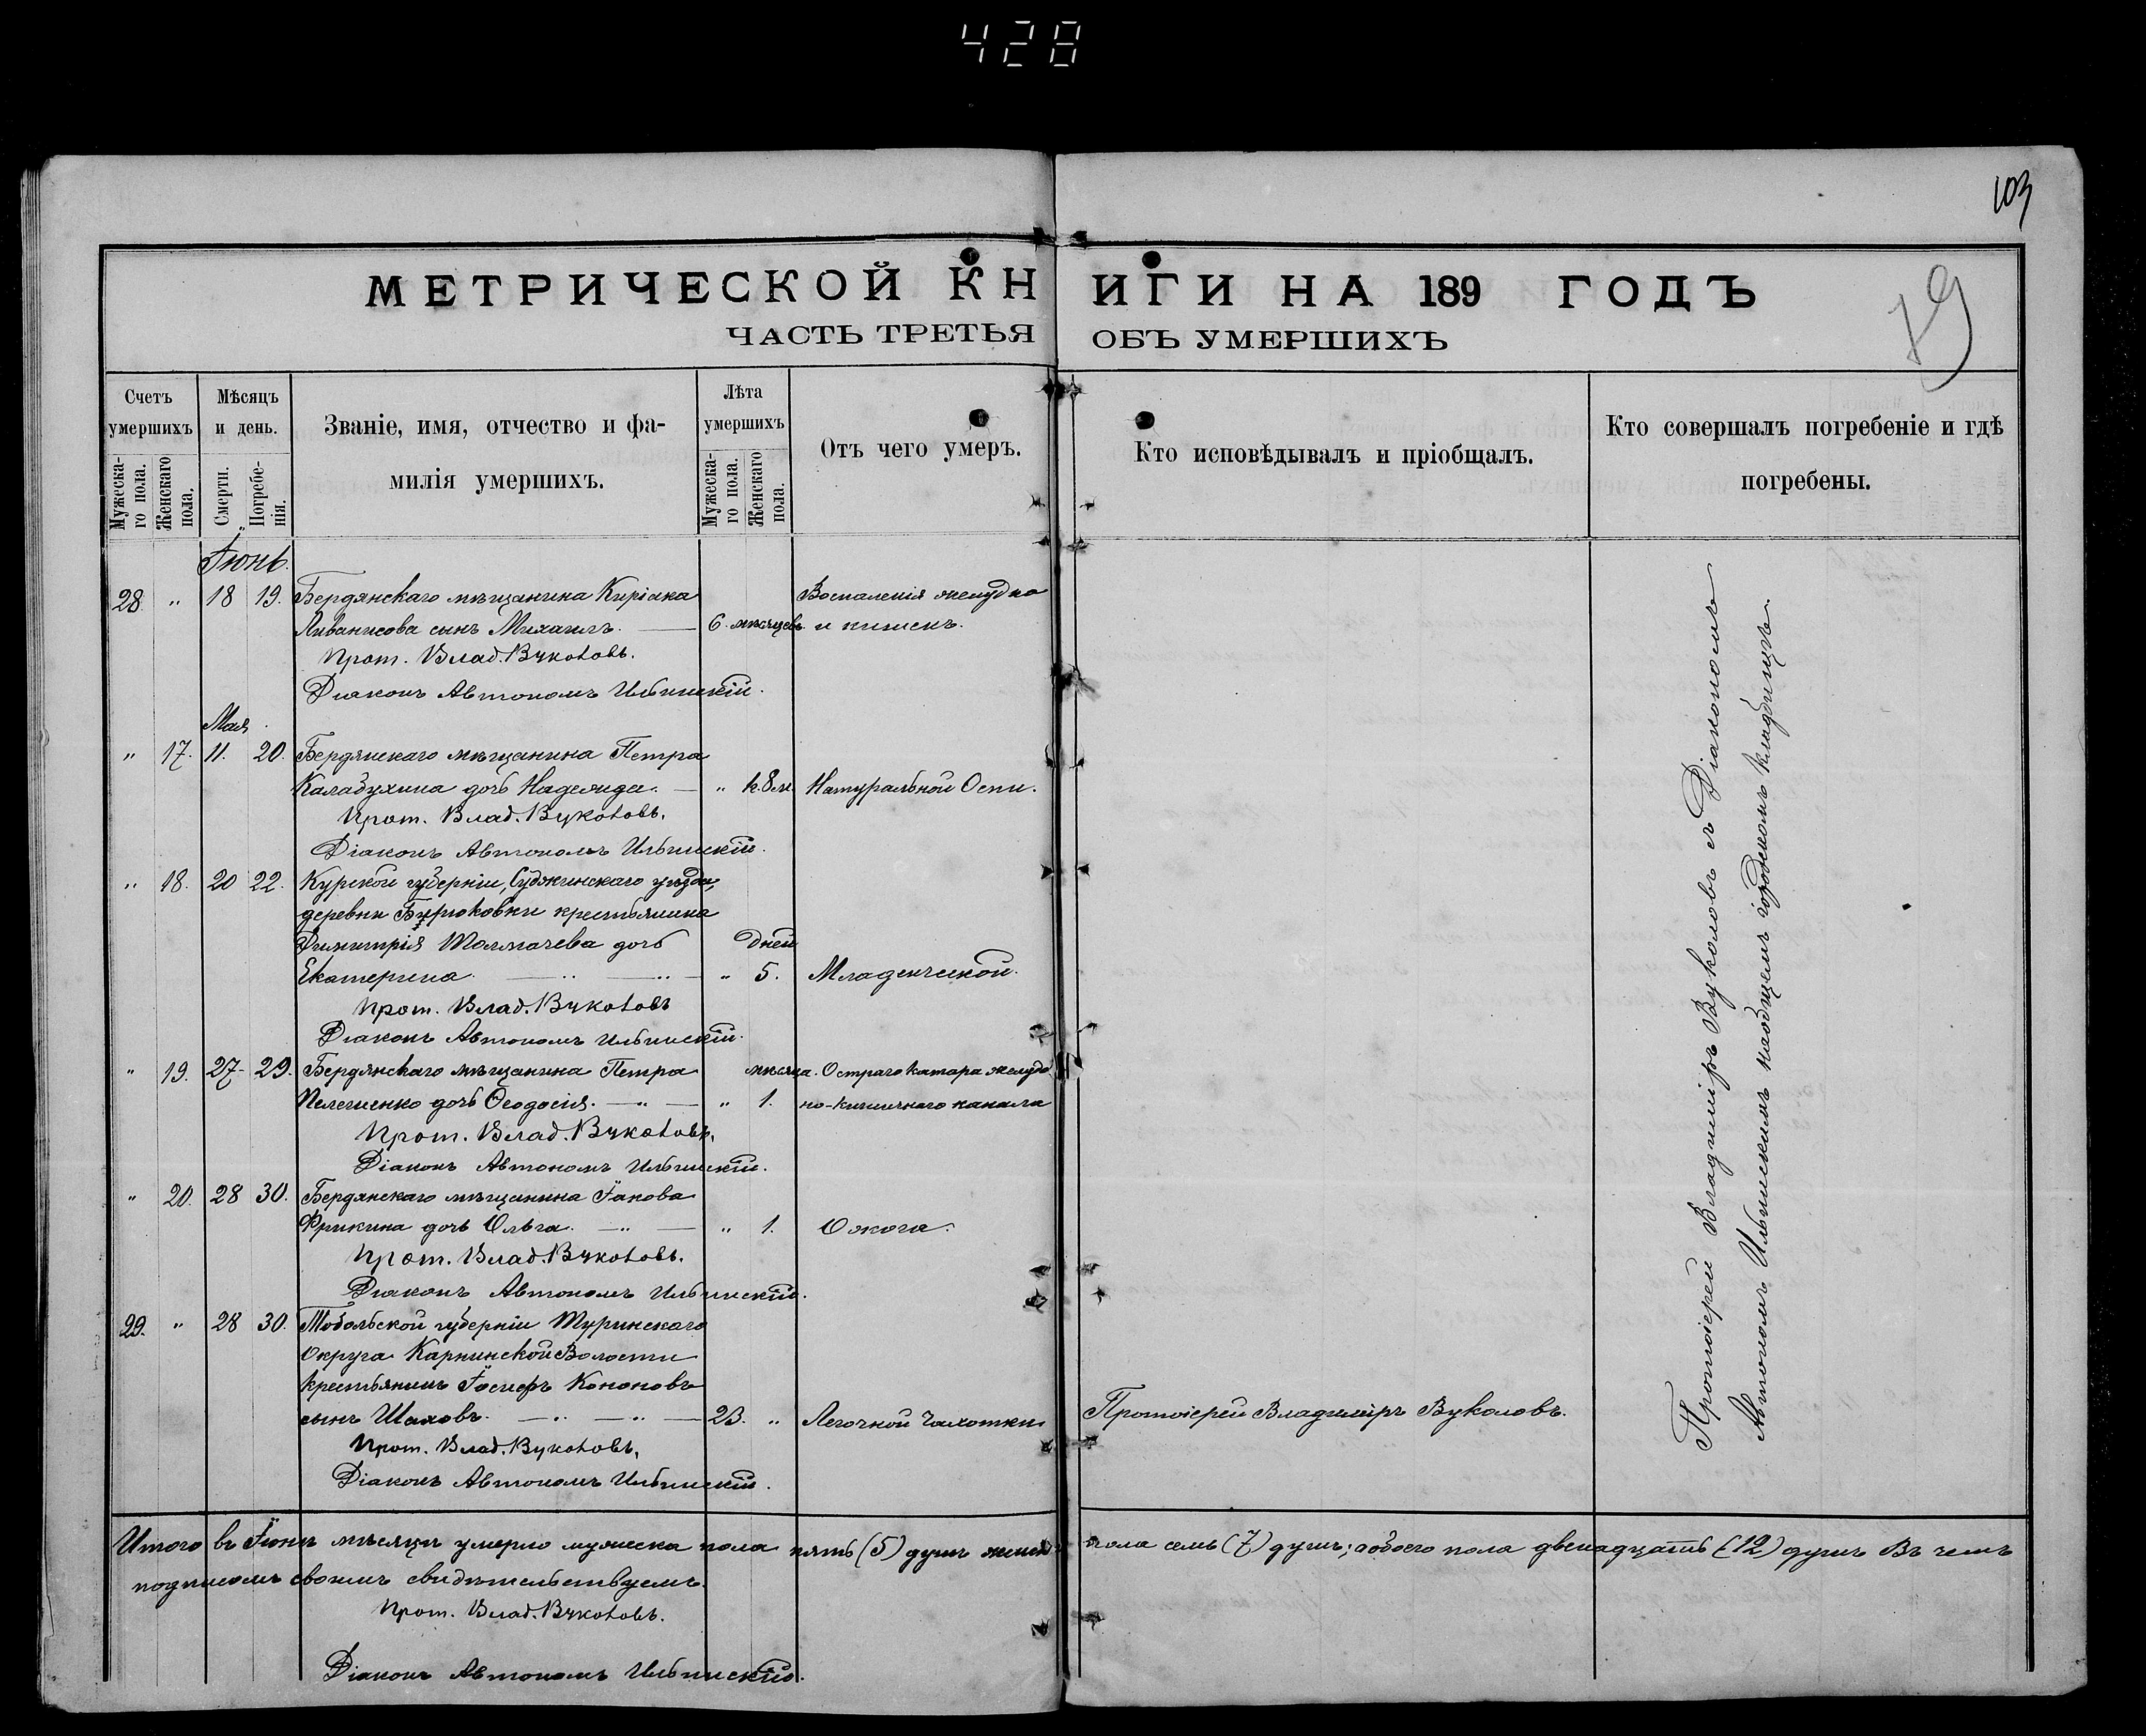 428
103
79
МЕТРИЧЕСКОЙ КНИГИ НА 189 ГОДЪ
ЧАСТЬ ТРЕТЬЯ ОБЪ УМЕРШИХЪ
Счетъ умершихъ
Мужеска-го пола.
Женскаго пола.
Мѣсяцъ и день.
Смерти.
Погребе-нія.
Званіе, имя, отчество и фа-
милія умершихъ.
Лѣта умершихъ
Мужеска-го пола.
Женскаго пола.
Отъ чего умеръ.
Кто исповѣдывалъ и пріобщалъ.
Кто совершалъ погребеніе и гдѣ
погребены.
Іюнь.
28. " 18 19. Бердянскаго мѣщанина Киріака Воспаленія желудка
сынъ Михаилъ. — 6. мѣсяцевъ и кишекъ.
Прот. Влад. Вуколовъ.
Діаконъ Автономъ Ильинскій.
Мая
" 17. 11. 20. Бердянскаго мѣщанина Петра
Каладухина дочь Надежда. — " 8 м. Натуральной Оспы.
Прот. Влад. Вуколовъ.
Діаконъ Автономъ Ильинскій.
" 18. 20 22. Курской губерніи, Суджинскаго уѣзда,
деревни крестьянина
Димитрія Толмачева дочь Дней
Екатерина. — " — " — " 5. Младенческой.
Прот. Влад. Вуколовъ
Діаконъ Автономъ Ильинскій.
" 19. 27. 29. Бердянскаго мѣщанина Петра мѣсяца. Остраго катара желудо
дочь Ѳеодосія. — " — " 1. но-кишечнаго канала
Прот. Влад. Вуколовъ.
Діаконъ Автономъ Ильинскій.
" 20. 28 30. Бердянскаго мѣщанина Іакова
Фрикина дочь Ольга. — " — " 1. Ожога.
Прот. Влад. Вуколовъ.
Діаконъ Автономъ Ильинскій.
29. " 28 30. Тобольской губерніи Туринскаго
Округа Волости
крестьянинъ Іосифъ Кононовъ
сынъ Шаховъ. — " — " — 23. " Легочной Чахотки Протоіерей Владиміръ Вуколовъ.
Прот. Влад. Вуколовъ.
Діаконъ Автономъ Ильинскій.
Протоіерей Владиміръ Вуколовъ съ Діакономъ
Автономомъ Ильинскимъ на общемъ городскомъ кладбищѣ.
Итого въ Іюнѣ мѣсяцѣ умерло мужеска пола пять (5) душъ женск пола семь (7) душъ; обоего пола двенадцать (12) душъ Въ чемъ
подписомъ своимъ свидѣтельствуемъ.
Прот. Влад. Вуколовъ.
Діаконъ Автономъ Ильинскій.